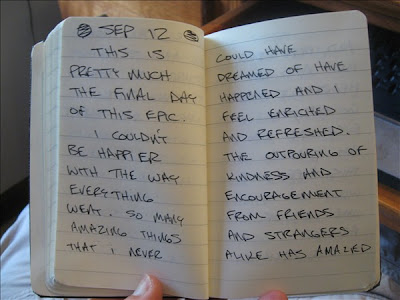 SEP 12
THIS IS
PRETTY MUCH
THE FINAL DAY
OF THIS EPIC.
I COULDN'T
BE HAPPIER
WITH THE WAY
EVERYTHING
WENT. SO MANY
AMAZING THINGS
THAT I NEVER
COULD HAVE
DREAMED OF HAVE
HAPPENED AND I
FEEL ENRICHED
AND REFRESHED.
THE OUTPOURING OF
KINDNESS AND
ENCOURAGEMENT
FROM FRIENDS
AND STRANGERS
ALIKE HAS AMAZED